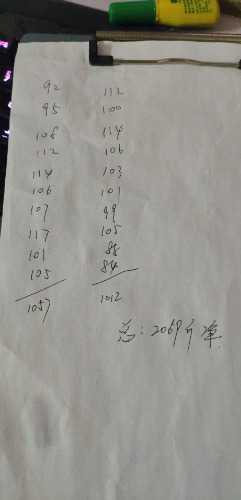 92
95
108
112
114
106
107
117
101
105
1057
112
100
114
106
103
101
99
105
88
84
1012
总：2069斤净